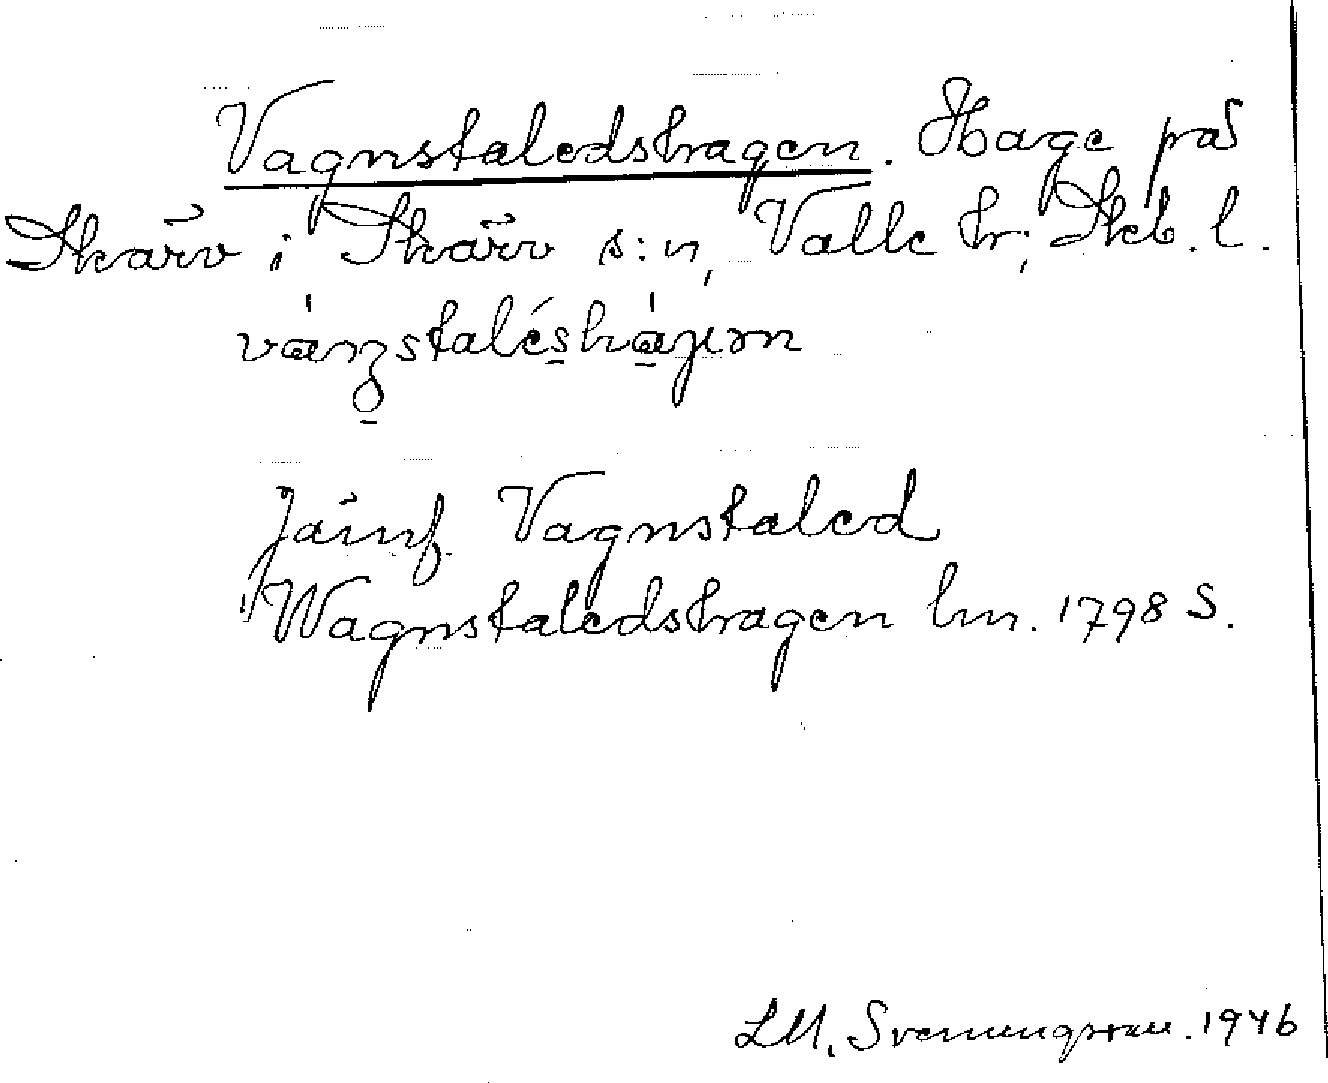 Vagnstaledshagen. Hage på
Skärv i Skärv s:n, Valle hr, Skb. l.
Jämf. Vagnstaled
Wagnstaledshagen lm. 1798 S.
LM. Svenungsson. 1946